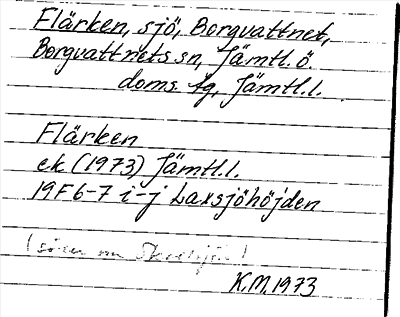 Flärken, sjö, Borgvattnet,
Borgvattnets sn, Jämtl. ö.
doms. tg, Jämtl. l.
Flärken
ek (1973) Jämtl. l.
19F6-7 i-j Laxsjöhöjden
K.M. 1973